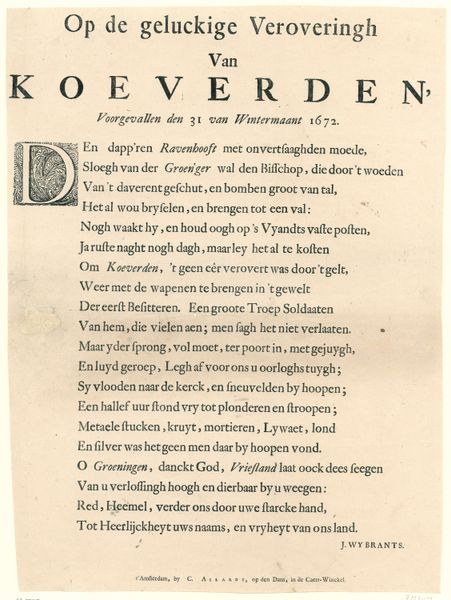 Op de geluckige Veroveringh
Van
KOEVERDEN,
Voorgevallen den 31 van Wintermaant 1672.
DEn dapp'ren Ravenhooft met onvertsaaghden moede,
Sloegh van der Groen'ger wal den Bisschop, die door 't woeden
Van 't daverent geschut, en bomben groot van tal,
Het al wou bryselen, en brengen tot een val:
Nogh waakt hy, en houd oogh op 's Vyandts vaste posten,
Ja ruste naght nogh dagh, maar ley het al te kosten
Om Koeverden, 't geen eér verovert was door 't gelt,
Weer met de wapenen te brengen in 't gewelt
Der eerst Besitteren. Een groote Troep Soldaaten
Van hem, die vielen aen; men sagh het niet verlaten.
Maar yder sprong, vol moet, ter poort in, met gejuygh,
En luyd geroep, Legh af voor ons u oorloghs tuygh;
Sy vlooden naar de kerck, en sneuvelden by hoopen;
Een hallef uur stond vry tot plonderen en stroopen;
Metaele stucken, kruyt, mortieren, Lywaet, lond
En silver was het geen men daar by hoopen vond.
O Groeningen, danckt God, Vriesland laat oock dees seegen
Van u verlossingh hoogh en dierbaar by u weegen:
Red, Heemel, verder ons door uwe starcke hand,
Tot Heerlijckheyt uws naams, en vryheyt van ons land.
J. WYBRANTS.
t'Amsterdam, by C. ALLARDT, op den Dam, in de Caert-Winckel.